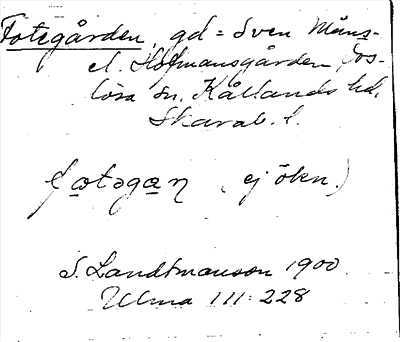 Fotegården, gd = Sven Måns-
el. Hofmansgården Jos-
lösa sn. Kållands hd.
Skarab. l.
fotəgan (ej ökn.)
S. Landtmanson 1900
Ulma 111:228